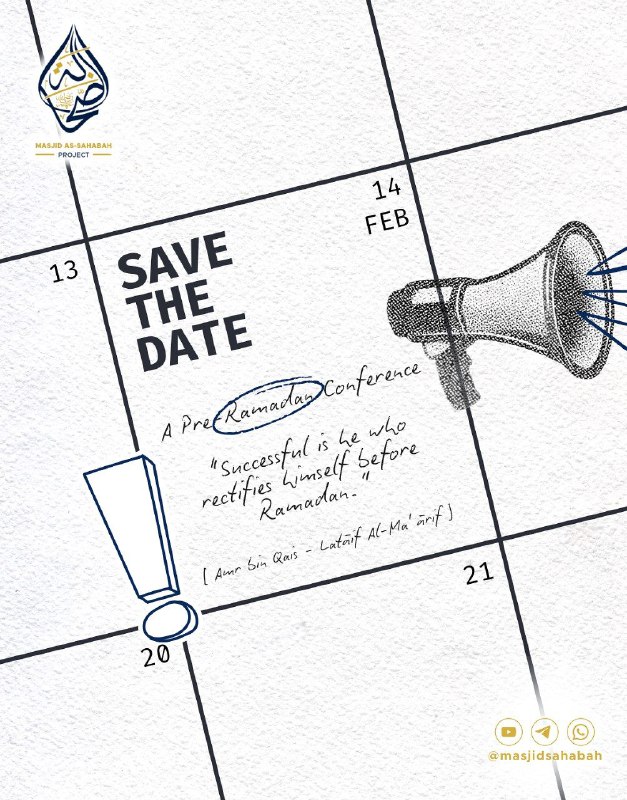 صحابة
MASJID AS-SAHABAH
PROJECT
13
14
FEB
SAVE
THE
DATE
A Pre-Ramadan Conference
"Successful is he who
rectifies himself before
Ramadan."
[Amr bin Qais - Latāif Al-Ma'ārif]
20
21
@masjidsahabah